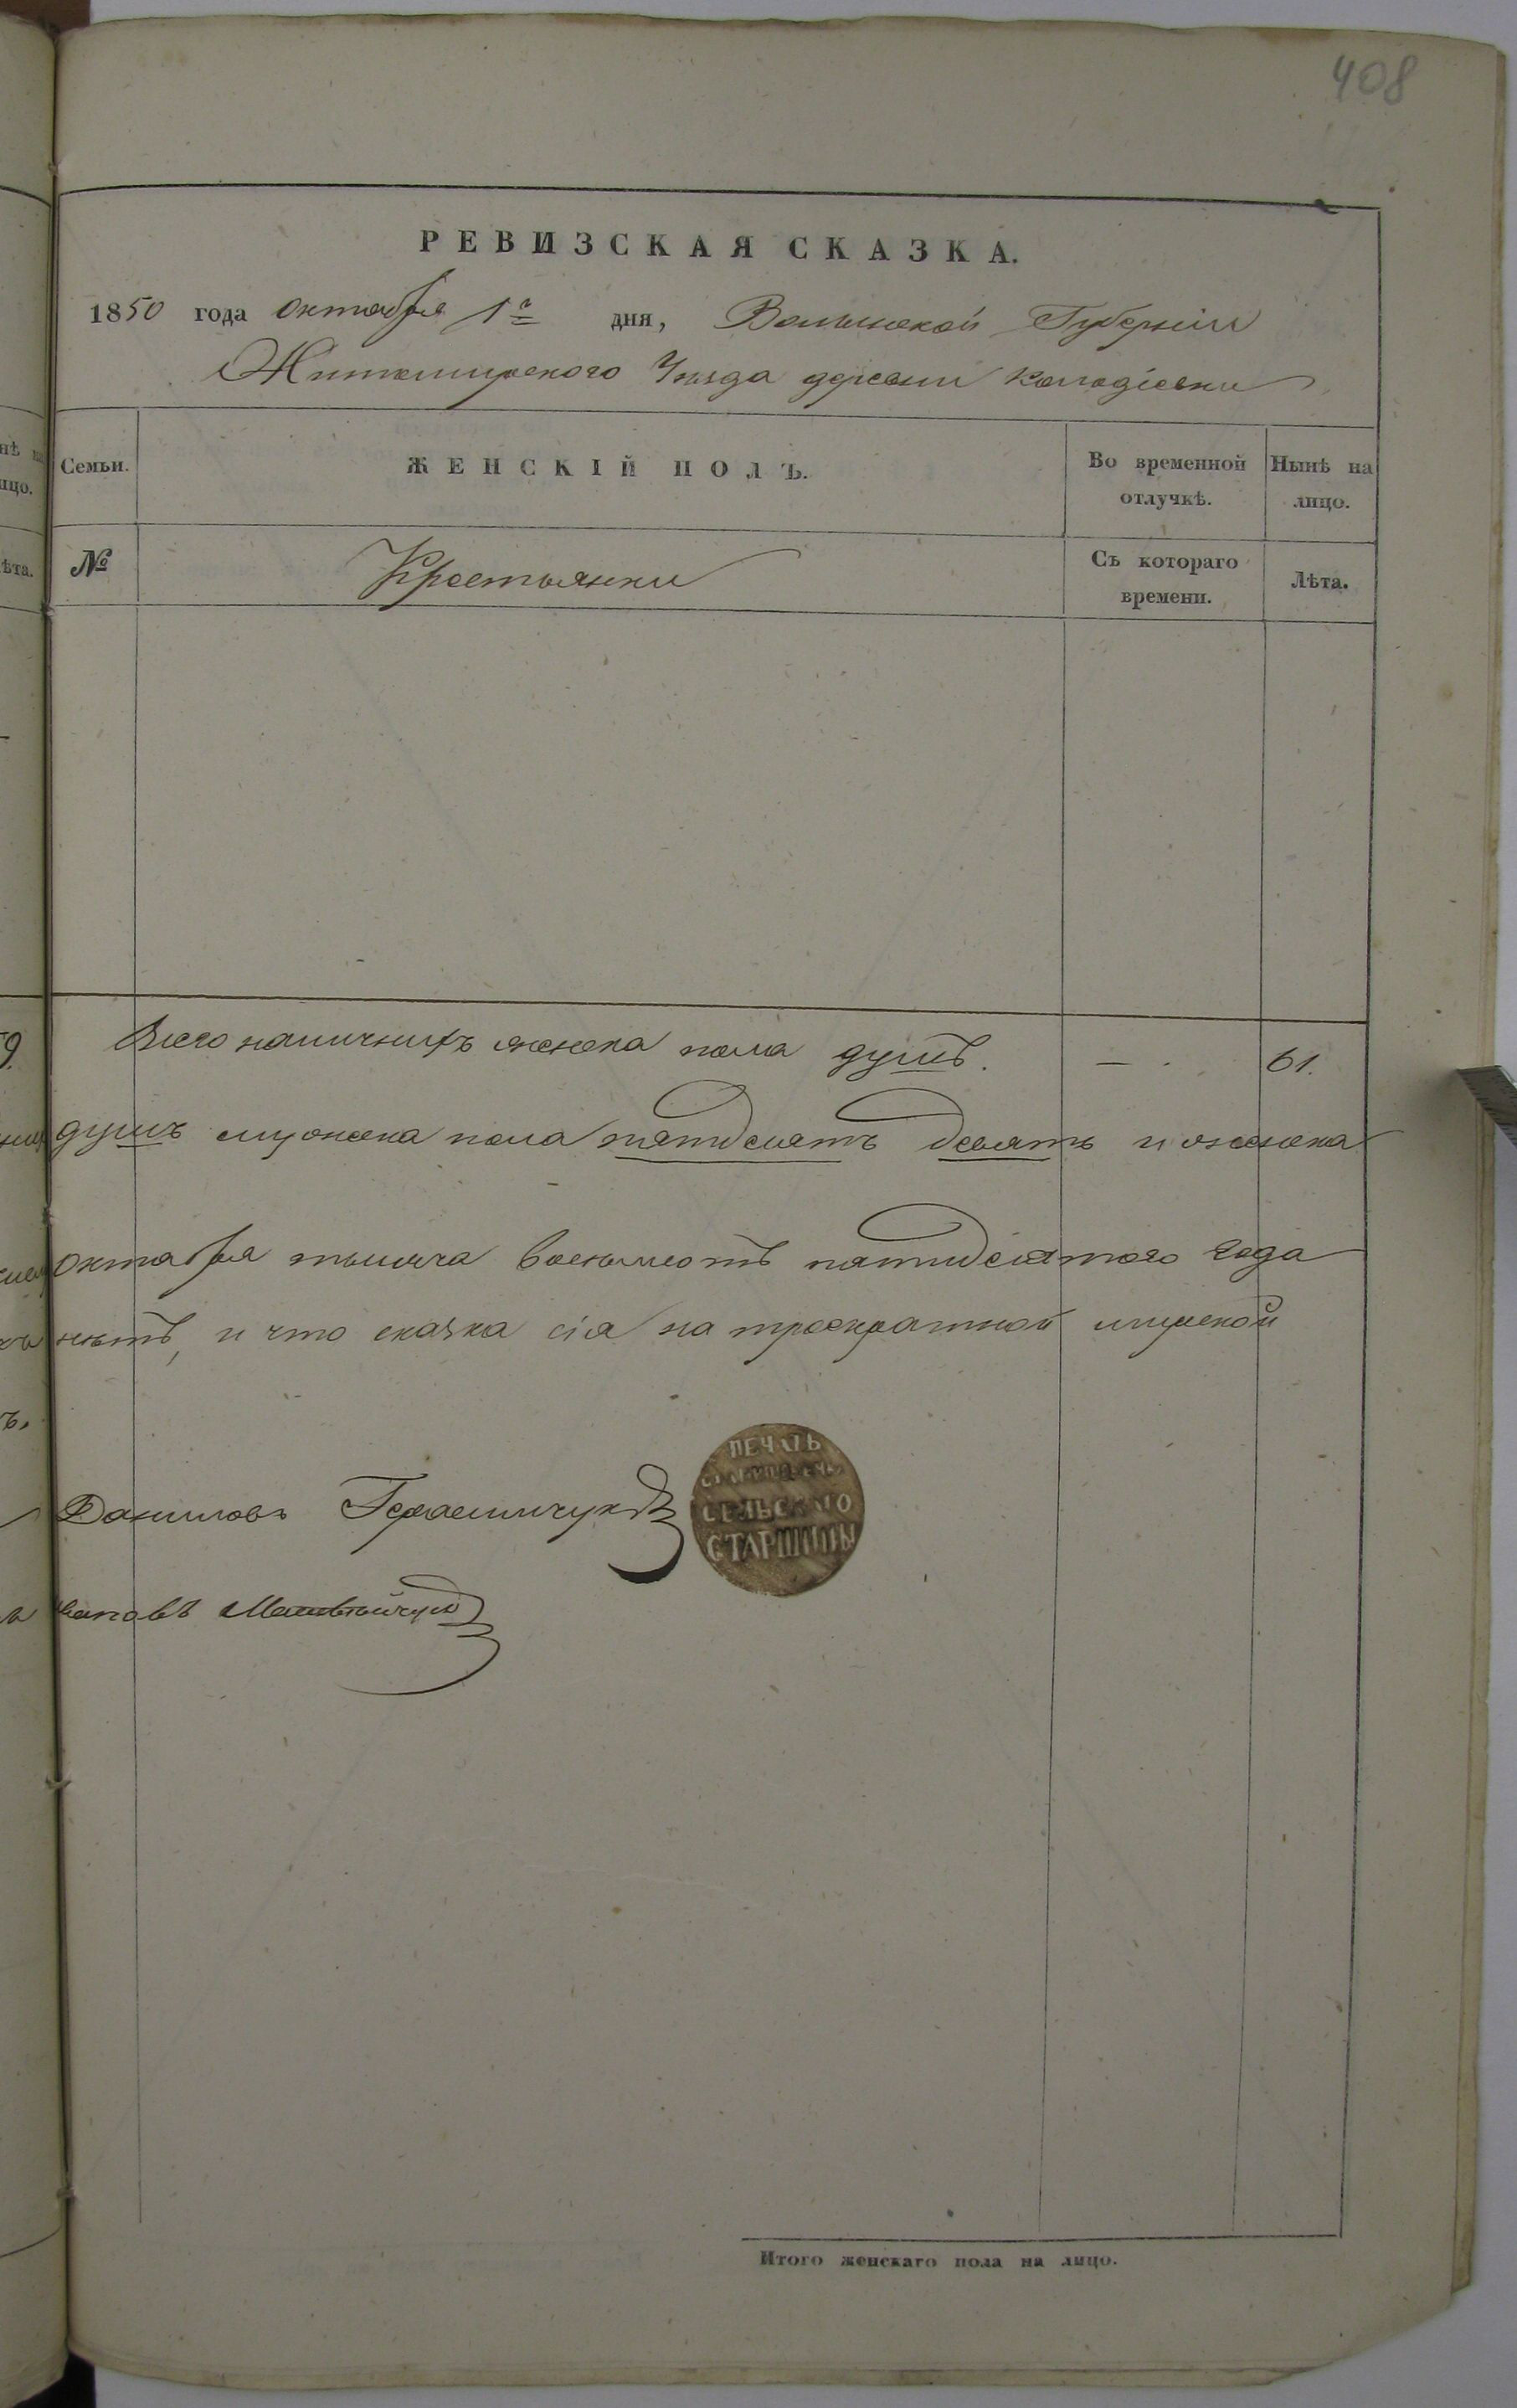 408
РЕВИЗСКАЯ СКАЗКА.
1850 года октября 1го дня, Волынской Губерніи
Житомирского Уезда деревни Колодіевки
Семьи.
ЖЕНСКІЙ ПОЛЪ.
Во временной отлучкѣ.
Нынѣ на лицо.
№
Крестьянки
Съ котораго времени.
Лѣта.
Всего наличныхъ женска пола душъ. — 61.
душъ мужеска пола пятдесятъ девять и женска
октября тысяча восемьсотъ пятидесятого года
нѣтъ, и что сказка сія на троекратной мирской
Даниловъ Герасимчукъ
ПЕЧАТЬ
СЕЛЬСКАГО
СТАРШИНЫ
Матвѣйчукъ
Итого женскаго пола на лицо.